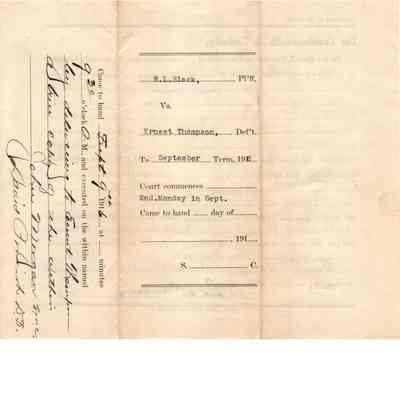 W.L.Black, Pl'ff.
Vs.
Ernest Thompson, Def't.
To September Term, 191
Court commences
2nd.Monday in Sept.
Came to hand day of
, 191
S. C.
Came to hand Sept 9th 1916, at minutes
9 30 o'clock A.M., and executed on the within named
by delivering to Ernest Thompson
a true copy of the within
John Morgan
D.S.